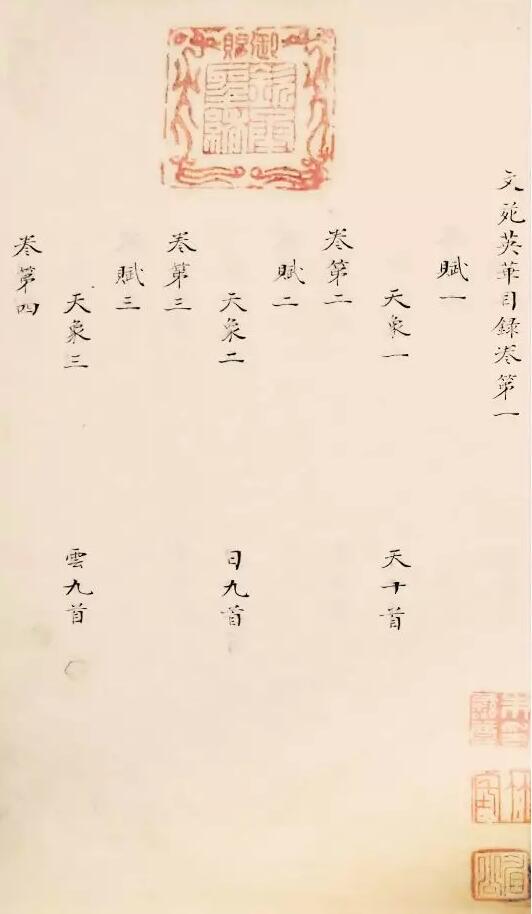 文苑英華目録卷第一
賦一
天象一 天十首
卷第二
賦二
天象二 日九首
卷第三
賦三
天象三 雲九首
卷第四